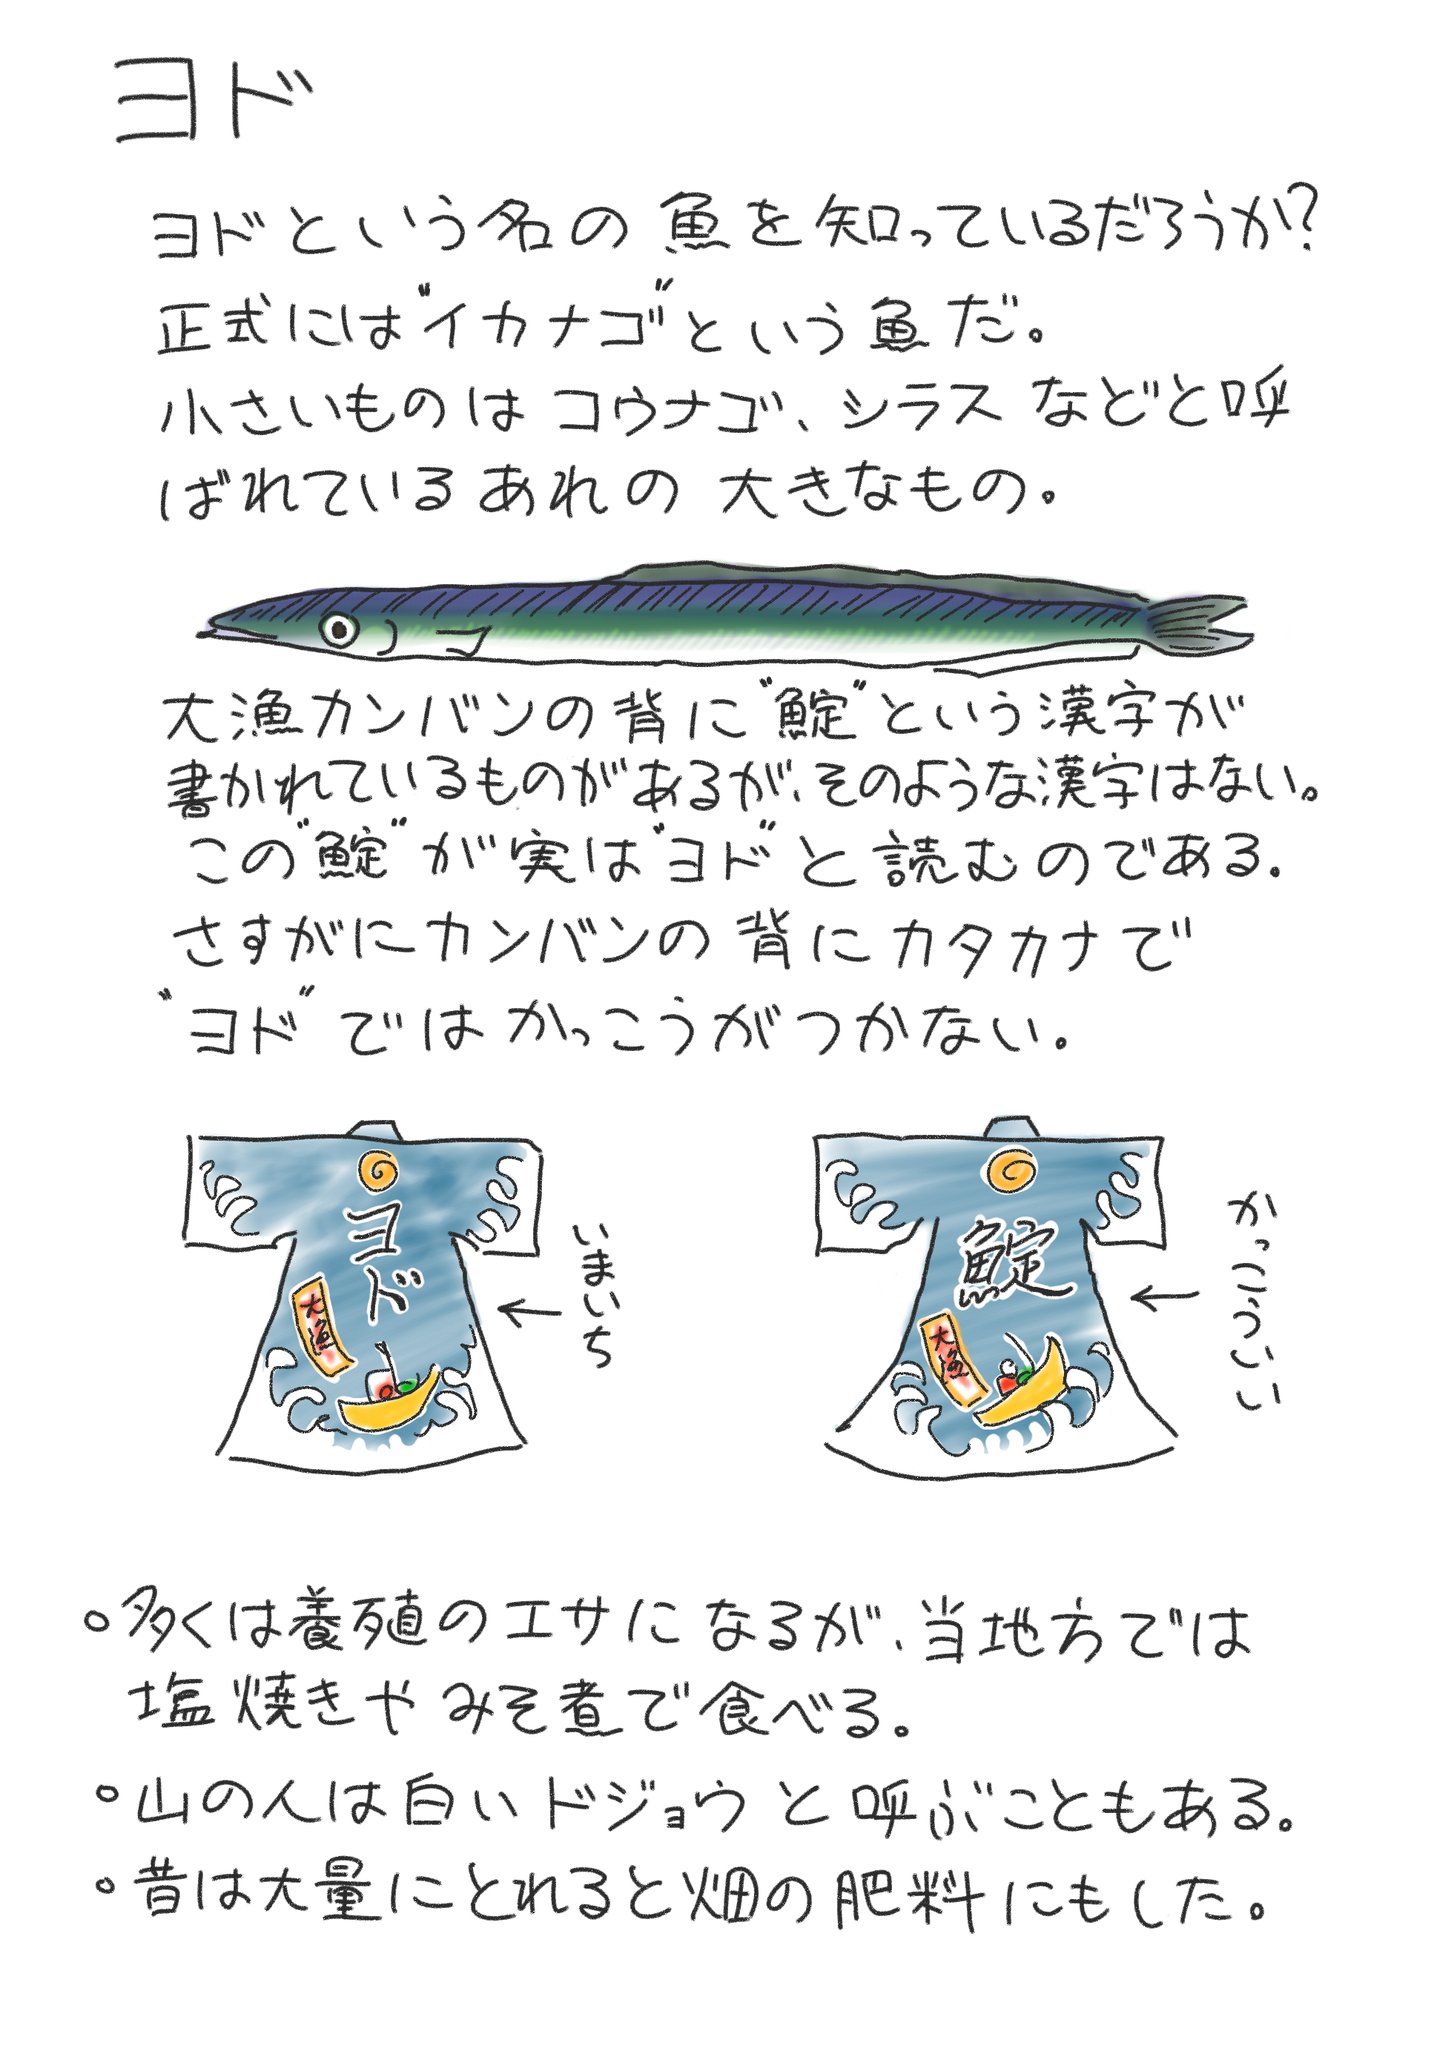 ヨド
ヨドという名の魚を知っているだろうか?
正式には"イカナゴ"という魚だ。
小さいものはコウナゴ、シラスなどと呼
ばれているあれの大きなもの。
大漁カンバンの背に"鯳"という漢字が
書かれているものがあるが、そのような漢字はない。
この"鯳"が実は"ヨド"と読むのである。
さすがにカンバンの背にカタカナで
"ヨド"ではかっこうがつかない。
ヨド
大漁
いまいち
鯳
大漁
かっこういい
○多くは養殖のエサになるが、当地方では
塩焼きやみそ煮で食べる。
○山の人は白いドジョウと呼ぶこともある。
○昔は大量にとれると畑の肥料にもした。